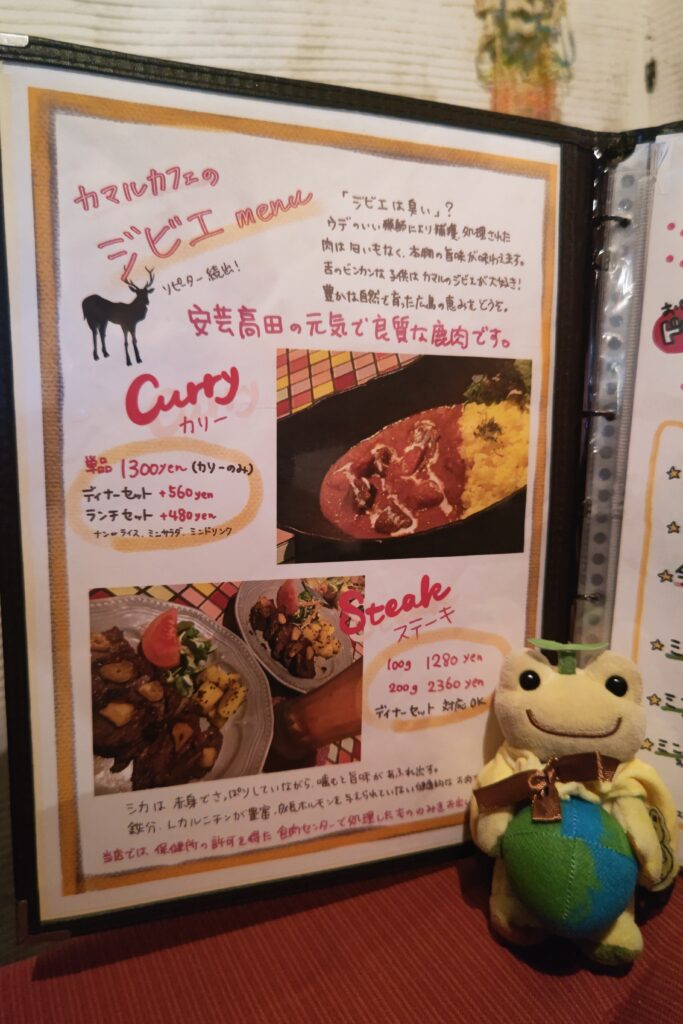 カマルカフェの
ジビエ menu
リピーター続出!
「ジビエは臭い」?
ウデのいい猟師により捕獲、処理された
肉は匂いもなく、本物の旨味が味わえます。
舌のビンカンな子供はカマルのジビエが大好き!
豊かな自然で育った広島の恵みをどうぞ。
安芸高田の元気で良質な鹿肉です。
Curry
カリー
単品 1300yen (カリーのみ)
ディナーセット +560yen
ランチセット +480yen
ナンorライス、ミニサラダ、ミニドリンク
Steak
ステーキ
100g 1280 yen
200g 2360 yen
ディナーセット 対応OK
シカは赤身でさっぱりしていながら、噛むと旨味があふれ出す。
鉄分、L.カルニチンが豊富、成長ホルモンを与えられていない健康的なお肉
当店では、保健所の許可を得た食肉センターで処理したもののみをお出し